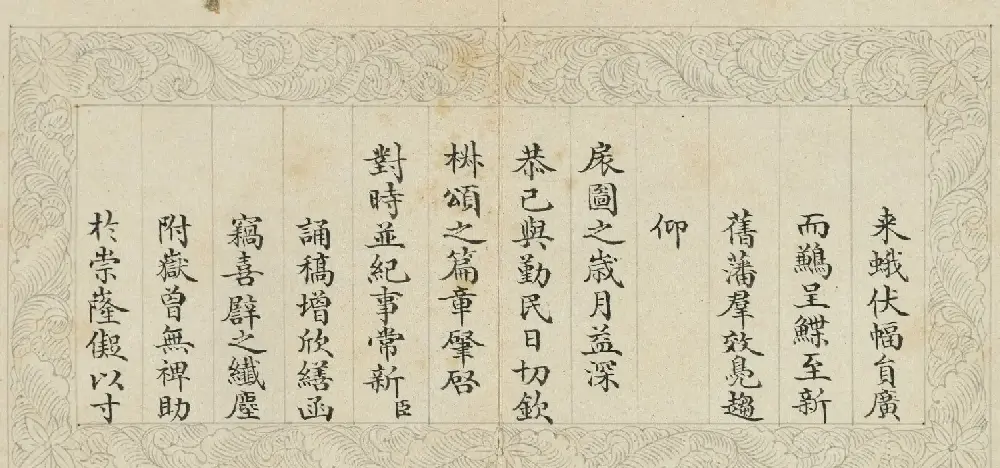 来蛾伏幅員廣
而鶼呈鰈至新
舊藩羣效鳧趨
仰
扆圖之歳月益深
恭己與勤民日切欽
椒頌之篇章肇啓
對時並紀事常新臣
誦稿增欣繕函
竊喜壁之纖塵
附嶽曾無裨助
於崇隆儗以寸